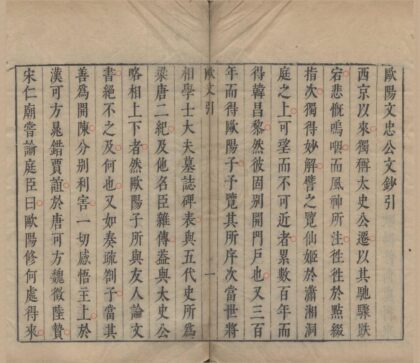 歐陽文忠公文鈔引
西京以來獨稱太史公遷以其馳驟跌
宕悲慨嗚咽而風神所注往往於點綴
指次獨得妙解譬之覽仙姬於瀟湘洞
庭之上可望而不可近者累數百年而
得韓昌黎然彼固別開門戶也又三百
年而得歐陽子予覽其所序次當世將
歐文引
一
相學士大夫墓誌碑表與五代史所爲
梁唐二紀及他名臣雜傳蓋與太史公
略相上下者然歐陽子所與友人論文
書絕不之及何也又如奏疏劄子當其
善爲開陳分別利害一切感悟主上於
漢可方晁錯賈誼於唐可方魏徵陸贄
宋仁廟嘗諭庭臣曰歐陽修何處得來